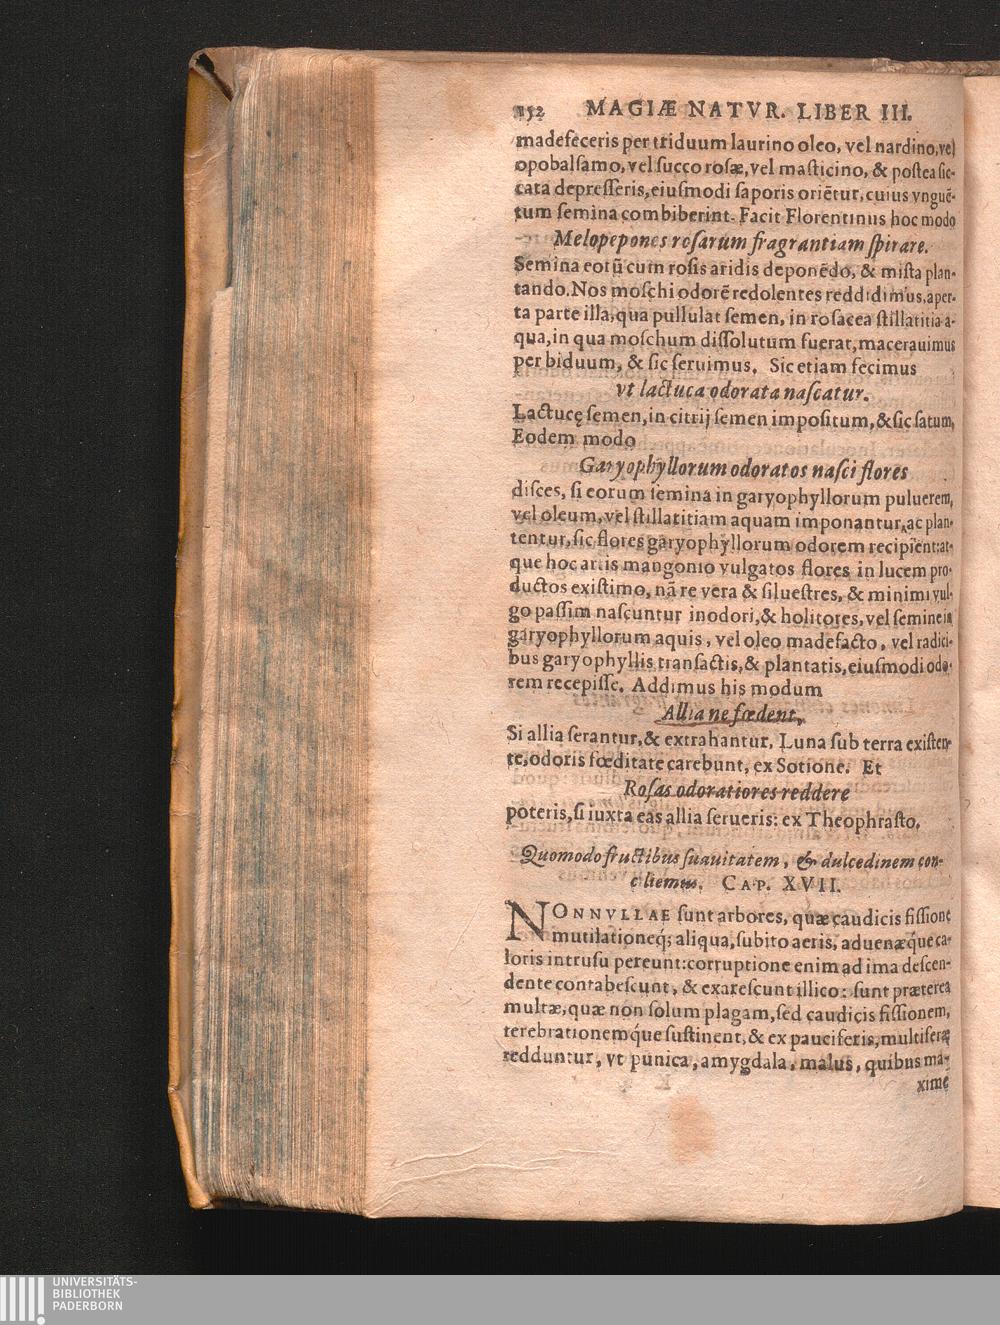 152 MAGIÆ NATVR. LIBER III.
madefeceris per triduum laurino oleo, vel nardino, vel
opobalsamo, vel succo rosæ, vel masticino, & postea sic-
cata depresseris, eiusmodi saporis oriẽtur, cuius vnguẽ-
tum semina combiberint. Facit Florentinus hoc modo
Melopepones rosarum fragrantiam spirare.
Semina eotũ cum rosis aridis deponẽdo, & mista plan-
tando. Nos moschi odorẽ redolentes reddidimus, aper-
ta parte illa, qua pullulat semen, in rosacea stillatitia a-
qua, in qua moschum dissolutum fuerat, macerauimus
per biduum, & sic seruimus. Sic etiam fecimus
vt lactuca odorata nascatur.
Lactucę semen, in citrij semen impositum, & sic satum,
Eodem modo
Garyophyllorum odoratos nasci flores
disces, si eorum semina in garyophyllorum puluerem,
vel oleum, vel stillatitiam aquam imponantur, ac plan-
tentur, sic flores garyophyllorum odorem recipient: at-
que hoc artis mangonio vulgatos flores in lucem pro-
ductos existimo, nã re vera & siluestres, & minimi vul-
go passim nascuntur inodori, & holitores, vel semine in
garyophyllorum aquis, vel oleo madefacto, vel radici-
bus garyophyllis transactis, & plantatis, eiusmodi odo-
rem recepisse. Addimus his modum
Allia ne fœdent,
Si allia serantur, & extrahantur, Luna sub terra existen-
te, odoris fœditate carebunt, ex Sotione. Et
Rosas odoratiores reddere
poteris, si iuxta eas allia serueris: ex Theophrasto.
Quomodo fructibus suauitatem, & dulcedinem con-
ciliemus. CAP. XVII.
NONNVLLAE sunt arbores, quæ caudicis fissione
mutilationeq́; aliqua, subito aeris, aduenæq́ue ca-
loris intrusu pereunt: corruptione enim ad ima descen-
dente contabescunt, & exarescunt illico: sunt præterea
multæ, quæ non solum plagam, sed caudicis fissionem,
terebrationemq́ue sustinent, & ex pauciferis, multiferæ
redduntur, vt punica, amygdala, malus, quibus ma-
xime
UNIVERSITÄTS-
BIBLIOTHEK
PADERBORN